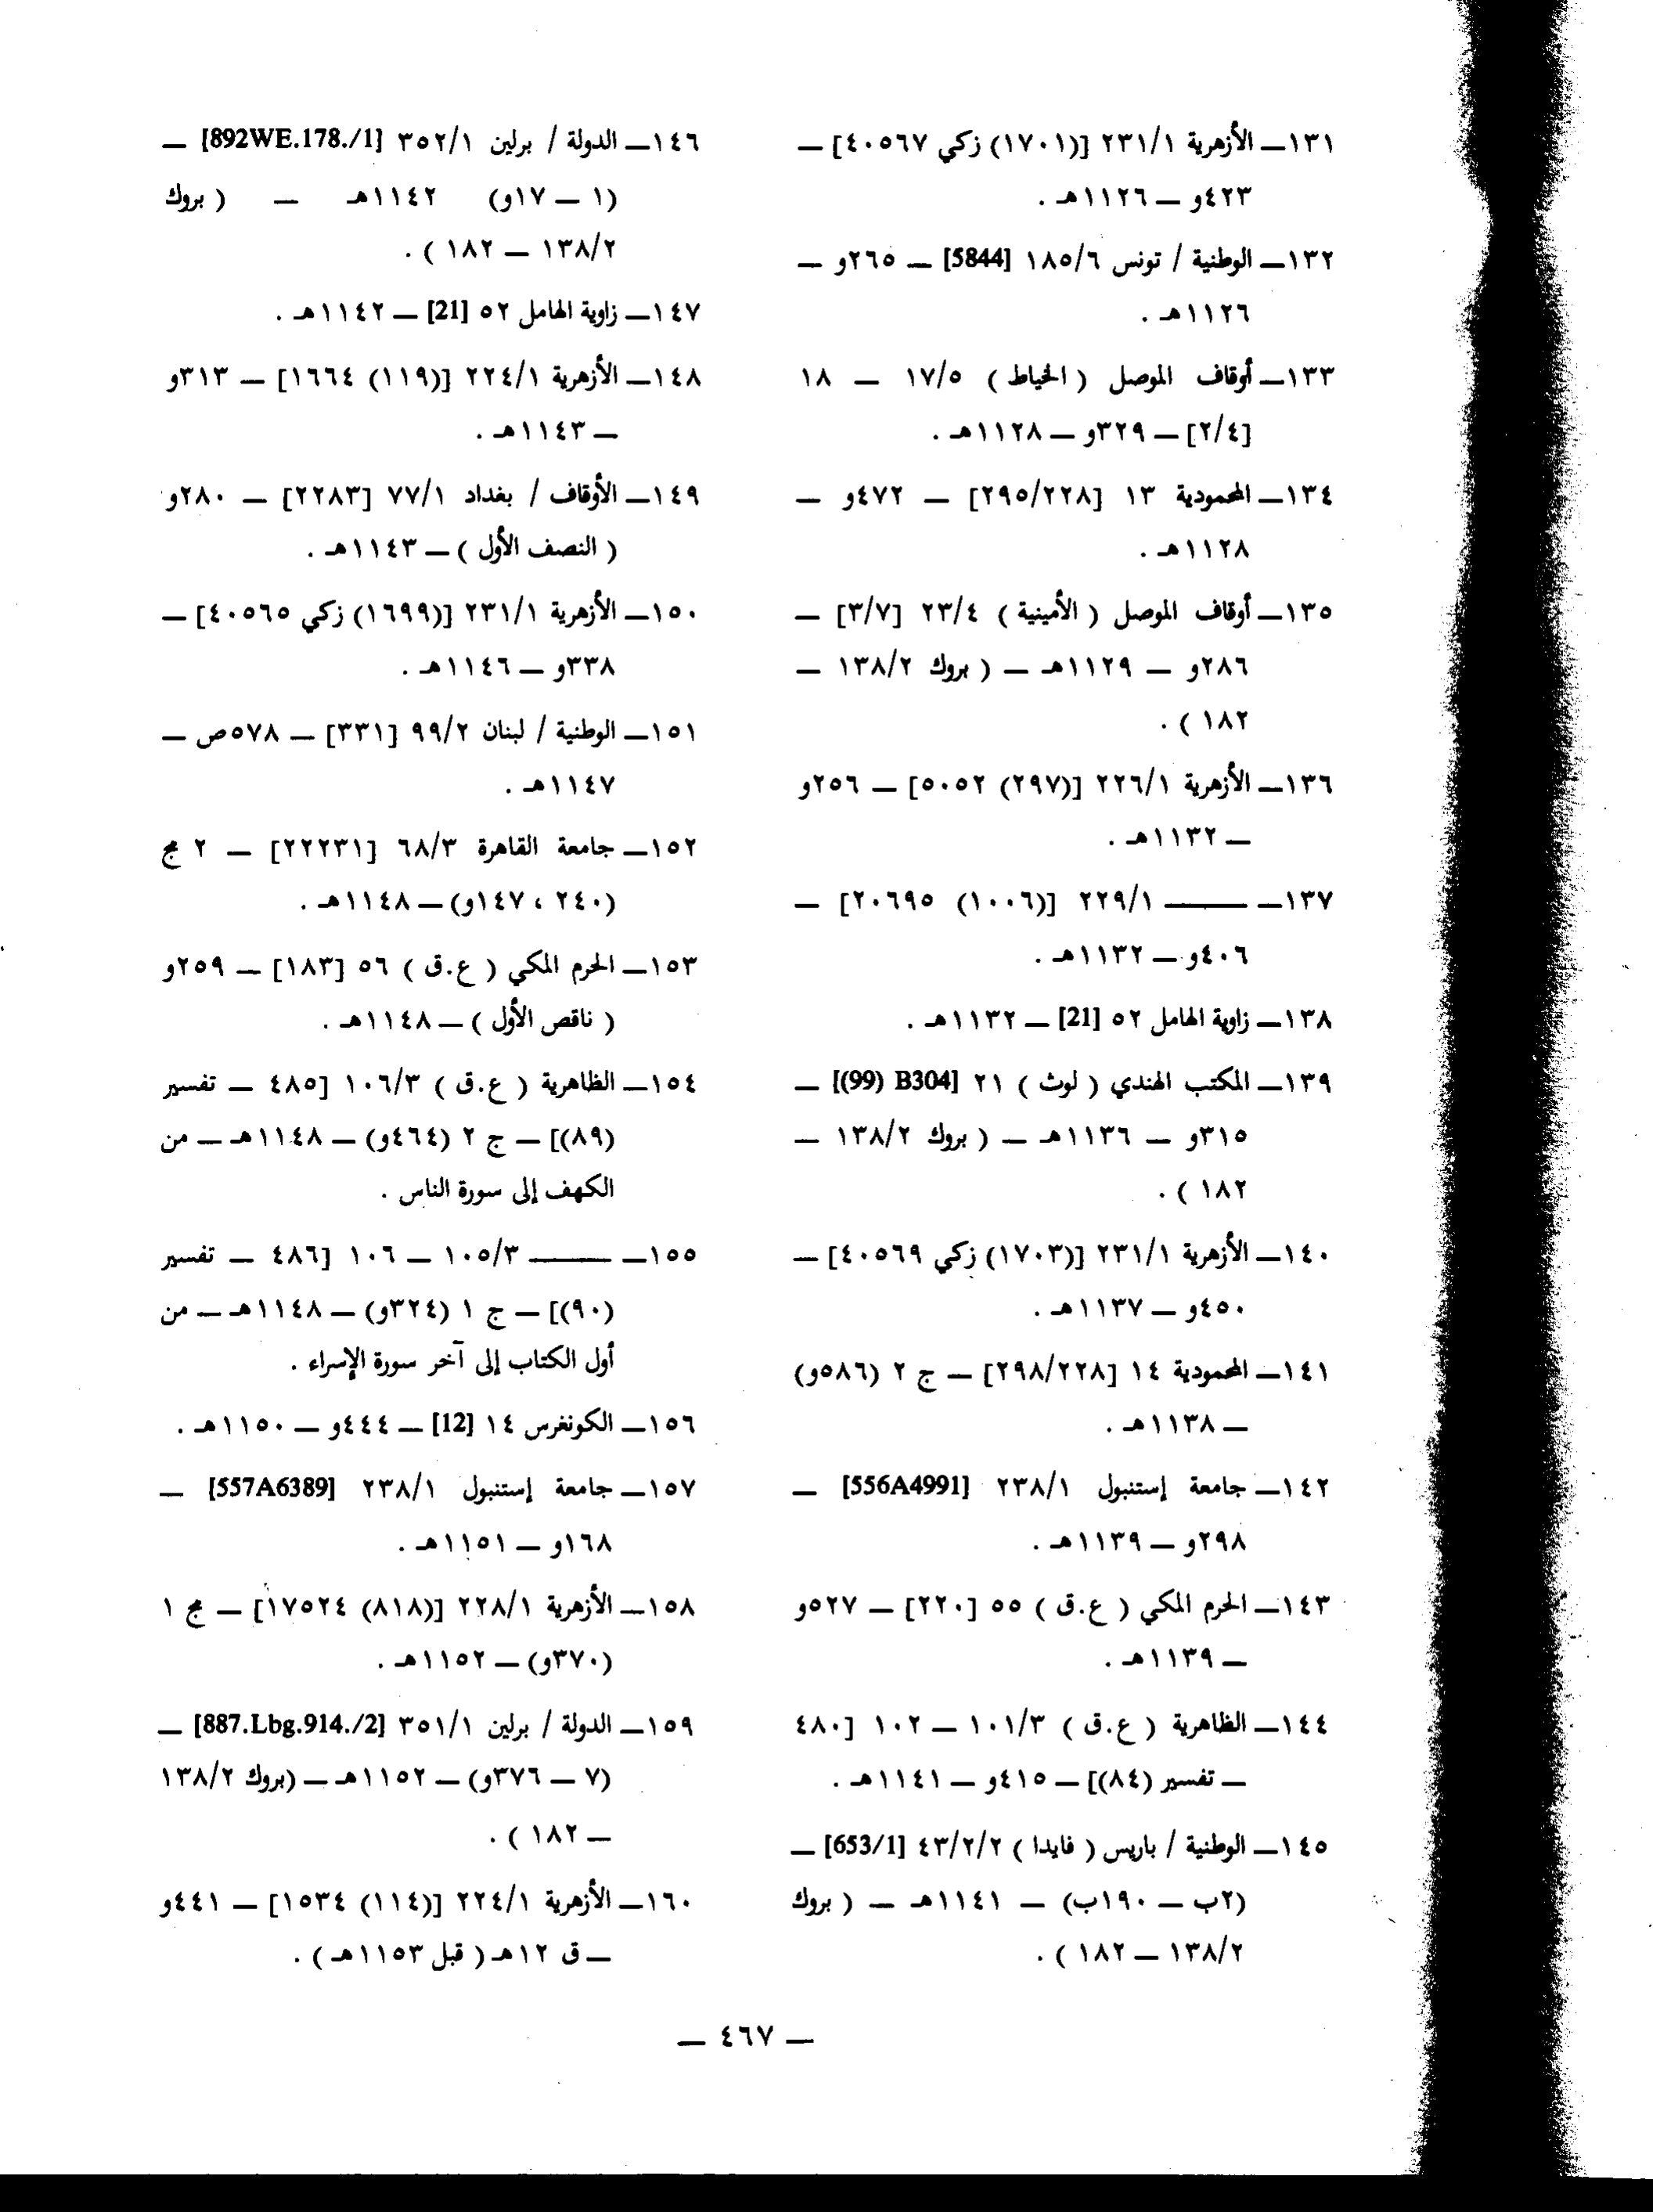 ١٣١ــ الأزهرية ٢٣١/١ [(١٧٠١) زكي ٤٠٥٦٧] ــ
٤٢٣و ــ ١١٢٦هـ .
١٣٢ــ الوطنية / تونس ١٨٥/٦ [5844] ــ ٢٦٥و ــ
١١٢٦هـ .
١٣٣ــ أوقاف الموصل ( الخياط ) ١٧/٥ ــ ١٨
[٢/٤] ــ ٣٢٩و ــ ١١٢٨هـ .
١٣٤ــ المحمودية ١٣ [٢٩٥/٢٢٨] ــ ٤٧٢و ــ
١١٢٨هـ .
١٣٥ــ أوقاف الموصل ( الأمينية ) ٢٣/٤ [٣/٧] ــ
٢٨٦و ــ ١١٢٩هـ ــ ( بروك ١٣٨/٢ ــ
١٨٢ ) .
١٣٦ــ الأزهرية ٢٢٦/١ [(٢٩٧) ٥٠٥٢] ــ ٢٥٦و
ــ ١١٣٢هـ .
١٣٧ــ ـــــــ ٢٢٩/١ [(١٠٠٦) ٢٠٦٩٥] ــ
٤٠٦و ــ ١١٣٢هـ .
١٣٨ــ زاوية الهامل ٥٢ [21] ــ ١١٣٢هـ .
١٣٩ــ المكتب الهندي ( لوث ) ٢١ [(99) B304] ــ
٣١٥و ــ ١١٣٦هـ ــ ( بروك ١٣٨/٢ ــ
١٨٢ ) .
١٤٠ــ الأزهرية ٢٣١/١ [(١٧٠٣) زكي ٤٠٥٦٩] ــ
٤٥٠و ــ ١١٣٧هـ .
١٤١ــ المحمودية ١٤ [٢٩٨/٢٢٨] ــ ج ٢ (٥٨٦و)
ــ ١١٣٨هـ .
١٤٢ــ جامعة إستنبول ٢٣٨/١ [556A4991] ــ
٢٩٨و ــ ١١٣٩هـ .
١٤٣ــ الحرم المكي ( ع.ق ) ٥٥ [٢٢٠] ــ ٥٢٧و
ــ ١١٣٩هـ .
١٤٤ــ الظاهرية ( ع.ق ) ١٠١/٣ ــ ١٠٢ [٤٨٠
ــ تفسير (٨٤)] ــ ٤١٥و ــ ١١٤١هـ .
١٤٥ــ الوطنية / باريس ( فايدا ) ٤٣/٢/٢ [653/1] ــ
(٢ب ــ ١٩٠ب) ــ ١١٤١هـ ــ ( بروك
١٣٨/٢ ــ ١٨٢ ) .
١٤٦ــ الدولة / برلين ٣٥٢/١ [892WE.178./1] ــ
(١ ــ ١٧و) ١١٤٢هـ ــ ( بروك
١٣٨/٢ ــ ١٨٢ ) .
١٤٧ــ زاوية الهامل ٥٢ [21] ــ ١١٤٢هـ .
١٤٨ــ الأزهرية ٢٢٤/١ [(١١٩) ١٦٦٤] ــ ٣١٣و
ــ ١١٤٣هـ .
١٤٩ــ الأوقاف / بغداد ٧٧/١ [٢٢٨٣] ــ ٢٨٠و
( النصف الأول ) ــ ١١٤٣هـ .
١٥٠ــ الأزهرية ٢٣١/١ [(١٦٩٩) زكي ٤٠٥٦٥] ــ
٣٣٨و ــ ١١٤٦هـ .
١٥١ــ الوطنية / لبنان ٩٩/٢ [٣٣١] ــ ٥٧٨ص ــ
١١٤٧هـ .
١٥٢ــ جامعة القاهرة ٦٨/٣ [٢٢٢٣١] ــ ٢ مج
(٢٤٠ ، ١٤٧و) ــ ١١٤٨هـ .
١٥٣ــ الحرم المكي ( ع.ق ) ٥٦ [١٨٣] ــ ٢٥٩و
( ناقص الأول ) ــ ١١٤٨هـ .
١٥٤ــ الظاهرية ( ع.ق ) ١٠٦/٣ [٤٨٥ ــ تفسير
(٨٩)] ــ ج ٢ (٤٦٤و) ــ ١١٤٨هـ ــ من
الكهف إلى سورة الناس .
١٥٥ــ ـــــــ ١٠٥/٣ ــ ١٠٦ [٤٨٦ ــ تفسير
(٩٠)] ــ ج ١ (٣٢٤و) ــ ١١٤٨هـ ــ من
أول الكتاب إلى آخر سورة الإسراء .
١٥٦ــ الكونغرس ١٤ [12] ــ ٤٤٤و ــ ١١٥٠هـ .
١٥٧ــ جامعة إستنبول ٢٣٨/١ [557A6389] ــ
١٦٨و ــ ١١٥١هـ .
١٥٨ــ الأزهرية ٢٢٨/١ [(٨١٨) ١٧٥٢٤] ــ مج ١
(٣٧٠و) ــ ١١٥٢هـ .
١٥٩ــ الدولة / برلين ٣٥١/١ [887.Lbg.914./2] ــ
(٧ ــ ٣٧٦و) ــ ١١٥٢هـ ــ (بروك ١٣٨/٢
ــ ١٨٢ ) .
١٦٠ــ الأزهرية ٢٢٤/١ [(١١٤) ١٥٣٤] ــ ٤٤١و
ــ ق ١٢هـ ( قبل ١١٥٣هـ ) .
ــ ٤٦٧ ــ